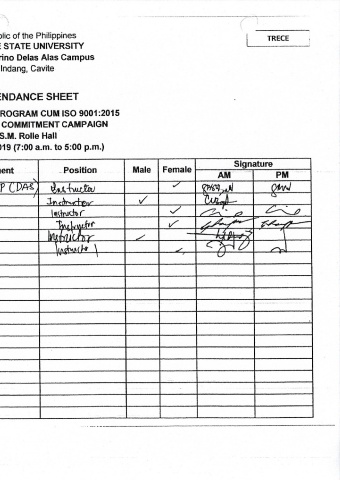 blic of the Philippines
TRECE
E STATE UNIVERSITY
rino Delas Alas Campus
Indang, Cavite
ENDANCE SHEET
ROGRAM CUM ISO 9001:2015
COMMITMENT CAMPAIGN
S.M. Rolle Hall
019 (7:00 a.m. to 5:00 p.m.)
ent Position Male Female Signature
AM PM
P (DAS) Instructor ✓
Instructor ✓
Instructor ✓
Instructor ✓
Instructor ✓
Instructor ✓